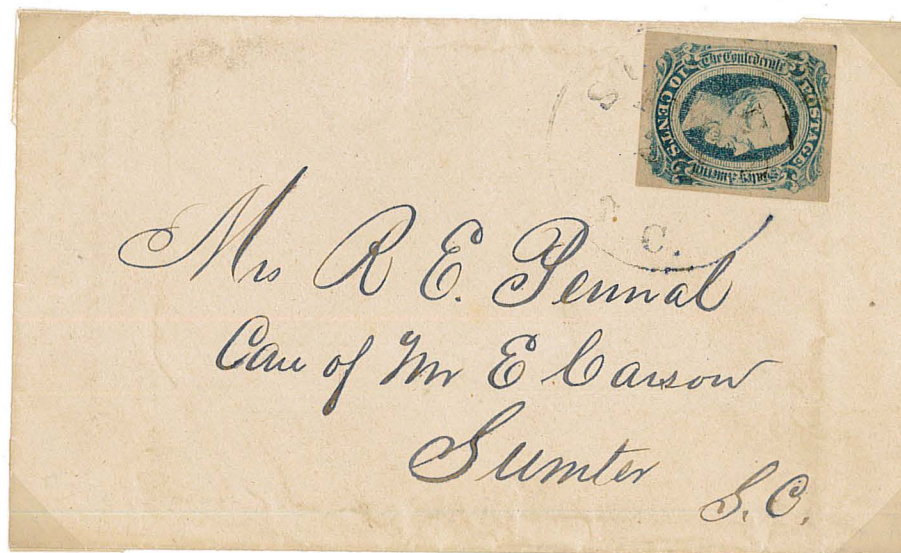 The Confederate
States America
POSTAGE
10 CENTS
C.
Mrs R E. Pennal
Care of Mr E Carson
Sumter
S.C.